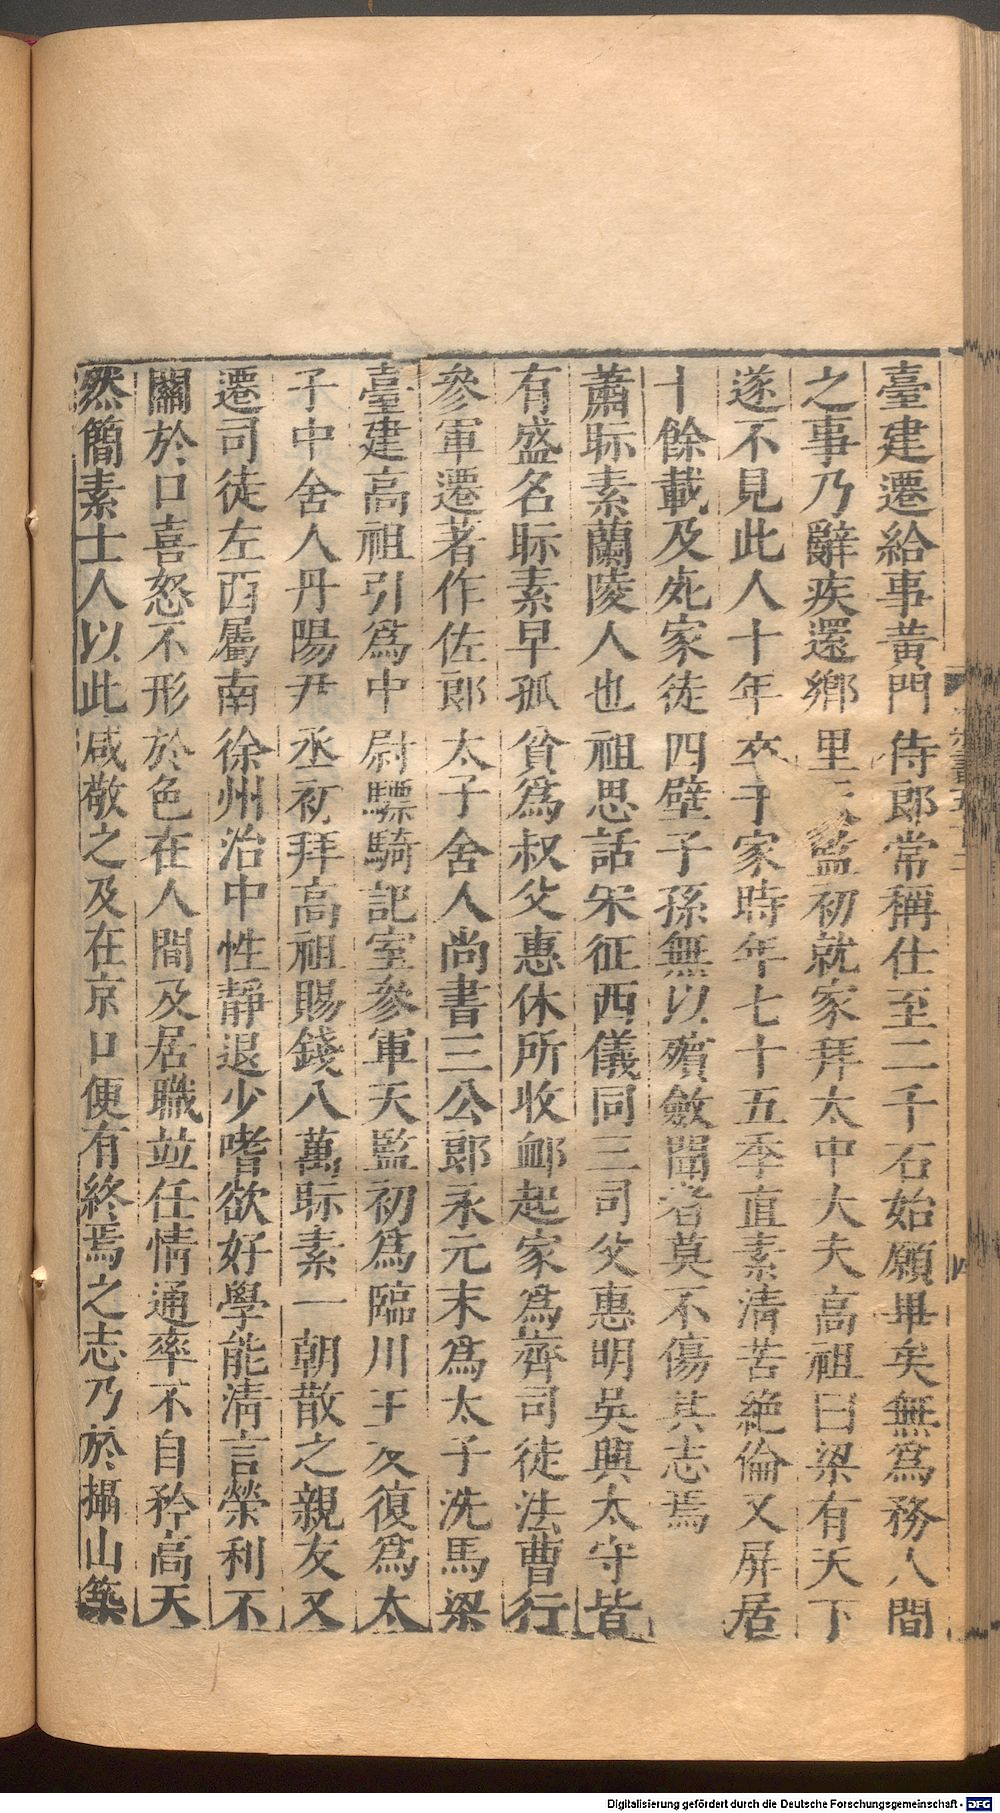 臺建遷給事黃門侍郎常稱仕至二千石始願畢矣無爲務人間
之事乃辭疾還鄉里天監初就家拜太中大夫高祖曰梁有天下
遂不見此人十年卒于家時年七十五季直素清苦絶倫又屏居
十餘載及死家徒四壁子孫無以殯斂聞者莫不傷其志焉
蕭眎素蘭陵人也祖思話宋征西儀同三司父惠明吳興太守皆
有盛名眎素早孤貧爲叔父惠休所收卹起家爲齊司徒法曹行
參軍遷著作佐郎太子舍人尚書三公郎永元末爲太子洗馬梁
臺建高祖引爲中尉驃騎記室參軍天監初爲臨川王友復爲太
子中舍人丹陽尹丞初拜高祖賜錢八萬眎素一朝散之親友又
遷司徒左西屬南徐州治中性靜退少嗜欲好學能清言榮利不
關於口喜怒不形於色在人間及居職並任情通率不自矜高天
然簡素士人以此咸敬之及在京口便有終焉之志乃於攝山築
Digitalisierung gefördert durch die Deutsche Forschungsgemeinschaft - DFG